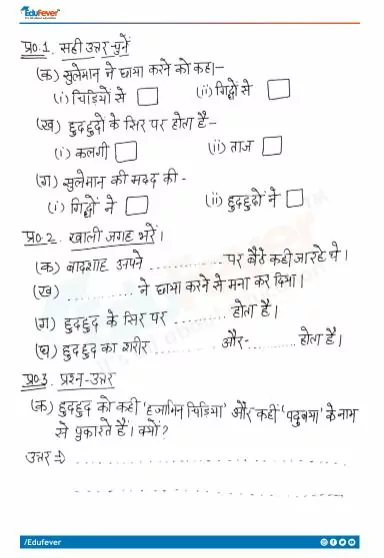 Edufever
प्र०1. सही उत्तर चुनें
(क) सुलेमान ने छाया करने को कहा—
(i) चिड़ियों से (ii) गिद्धों से
(ख) हुदहुदों के सिर पर होता है—
(i) कलगी (ii) ताज
(ग) सुलेमान की मदद की -
(i) गिद्धों ने (ii) हुदहुदों ने
प्र०2. खाली जगह भरें।
(क) बादशाह अपने ............ पर बैठे कहीं जा रहे थे।
(ख) ............ ने छाया करने से मना कर दिया।
(ग) हुदहुद के सिर पर .......... होता है।
(घ) हुदहुद का शरीर .............. और .......... होता है।
प्र०3. प्रश्न-उत्तर
(क) हुदहुद को कहीं 'हजामिन चिड़िया' और कहीं 'पदुबया' के नाम
से पुकारते हैं। क्यों?
उत्तर ⇒ ..........................................
..........................................
/Edufever